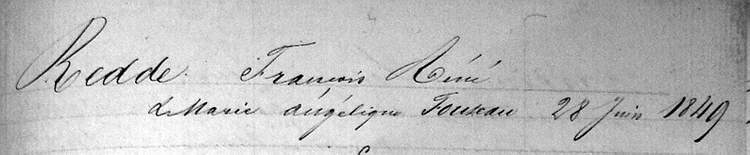 Redde François Réné
& Marie Angélique Fouseau 28 Juin 1849